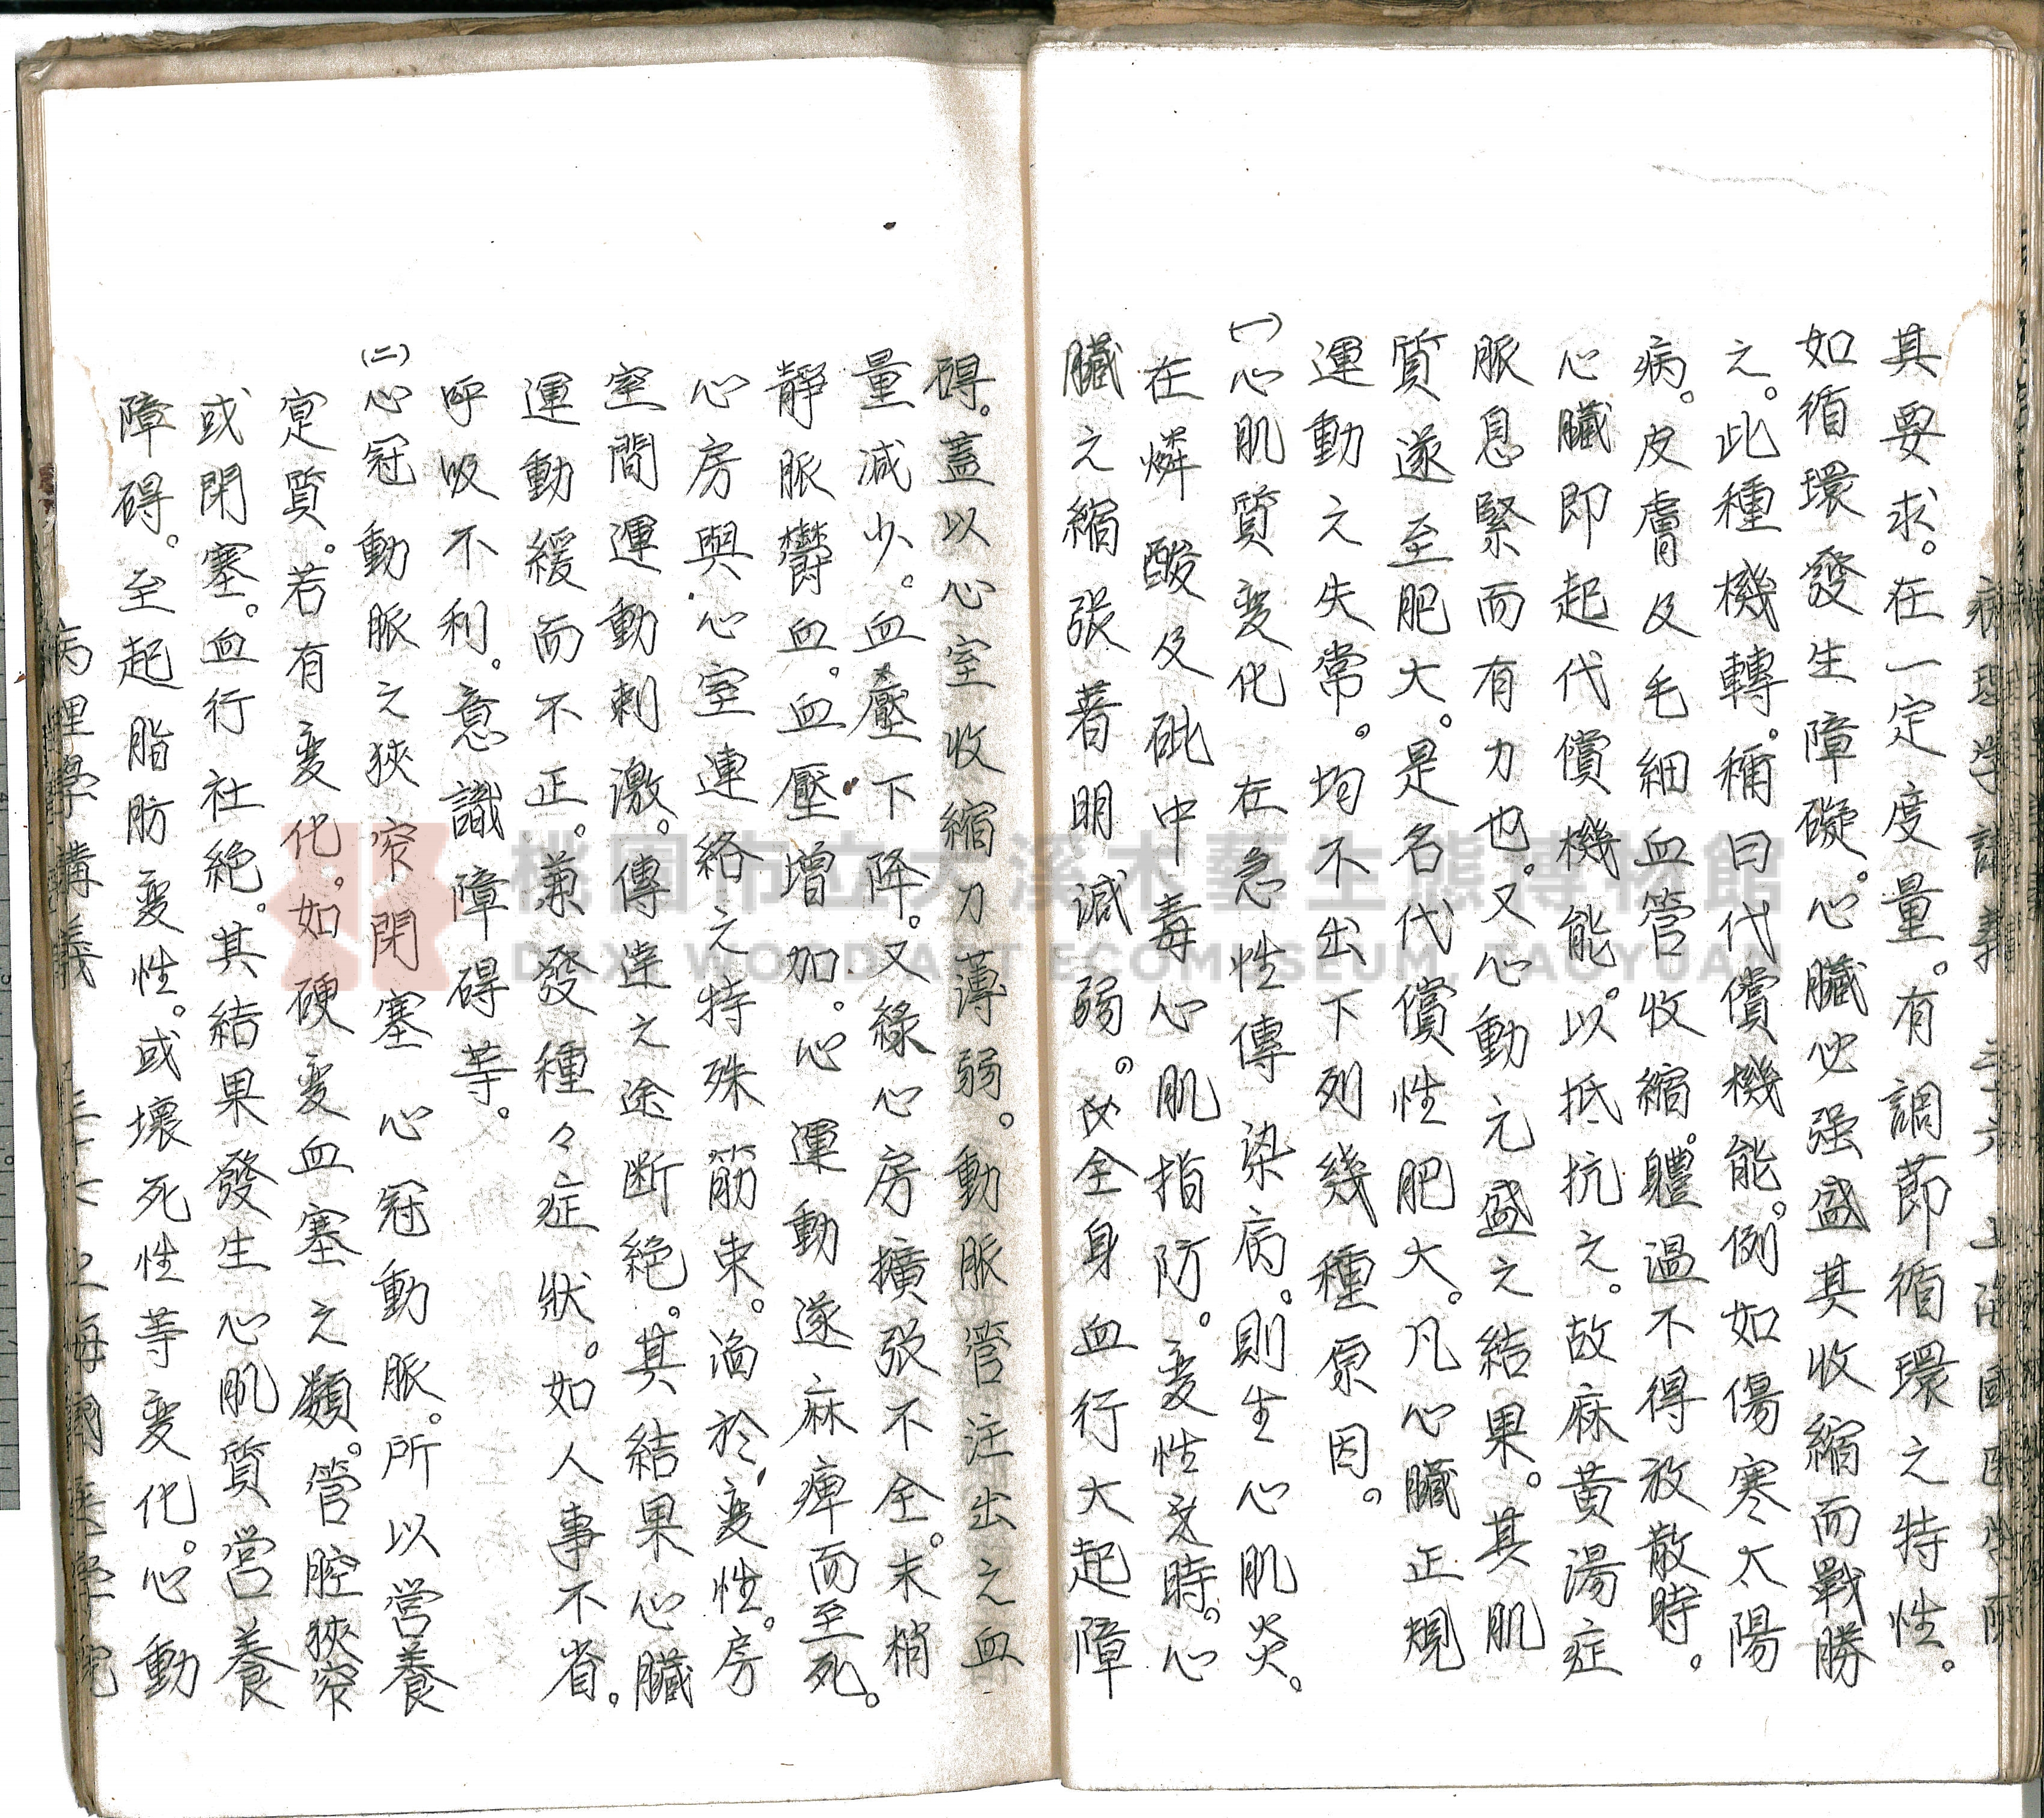 其要求。在一定度量。有調節循環之特性。
如循環發生障礙。心臟必强盛其收縮而戰勝
之。此種機轉。稱曰代償機能。例如傷寒太陽
病。皮膚及毛細血管收縮。體溫不得放散時。
心臟即起代償機能。以抵抗之。故麻黄湯症
脈息緊而有力也。又心動亢盛之結果。其肌
質遂至肥大。是名代償性肥大。凡心臟正規
運動之失常。均不出下列幾種原因。
(一)心肌質变化 在急性傳染病。則生心肌炎。
在燐酸及砒中毒心肌指防。变性之時。心
臟之縮張著明減弱。全身血行大起障
碍。蓋以心室收縮力薄弱。動脈管注出之血
量减少。血壓下降。又緣心房擴張不全。末梢
静脈鬱血。血壓增加。心運動遂麻痺而至死。
心房與心室連絡之特殊筋束。漘於变性。房
室間運動刺激。傳達之途断絕。其結果心臟
運動緩而不正。兼發種々症狀。如人事不省。
呼吸不利。意識障碍等。
(二)心冠動脈之狹窄閉塞 心冠動脈。所以营養
寔質。若有变化。如硬变血塞之類。管腔狹窄
或閉塞。血行社絕。其結果發生心肌質营養
障碍。至起脂肪变性。或壞死性等变化。心動
病理學講義
桃園市立大溪木藝生態博物館
DAXI WOOD ART ECOMUSEUM, TAOYUAN